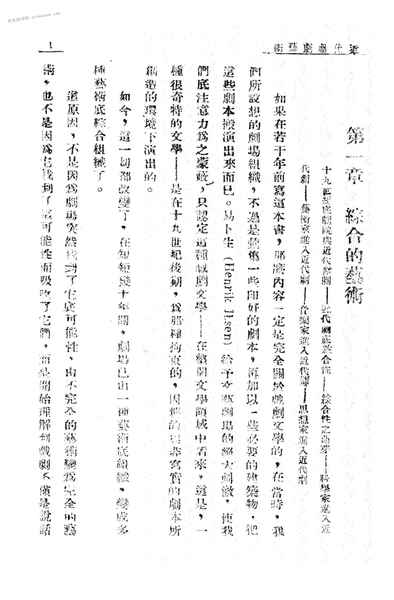 近代戲劇藝術
1
第一章 綜合的藝術
十九世紀底劇院與近代舞台——近代劇底綜合性——綜合性之由來——科學家進入近
代劇——藝術家進入近代劇——作家進入近代劇——思想家進入近代劇
如果在若干年前寫這本書,那麼內容一定是完全關於戲劇文學的,在當時,我
們所設想的劇場組織,不過是蒐集一些印好的劇本,再加以一些必要的建築物,把
這些劇本搬演出來而已。易卜生(Henrik Ibsen)給予文藝劇場的絕大刺激,使我
們底注意力為之蒙蔽,只認定這種戲劇文學——在整個文學領域中看來,這是,一
種很奇特的文學——是在十九世紀後期,為那種拘束的,因襲的,非寫實的劇本所
創造的環境下演出的。
如今,這一切都改變了,在短短幾十年間,劇場已由一種藝術底組織,變成多
種藝術底綜合組織了。
這原因,不是因為劇場突然找到了它底可能性,由不完全的藝術變為完全的藝
術,也不是因為它找到了這可能性而吸收了它們,而是開始理解到戲劇不僅是說話